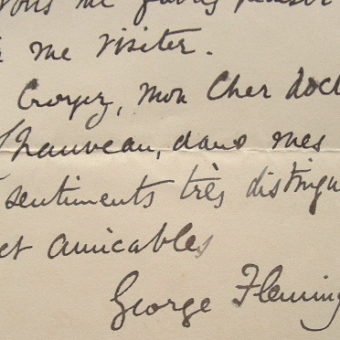 vous me faites passer
me visiter.
Croyez, mon Cher doct
Chauveau, dans mes
sentiments très distingu
et amicables
George Fleming